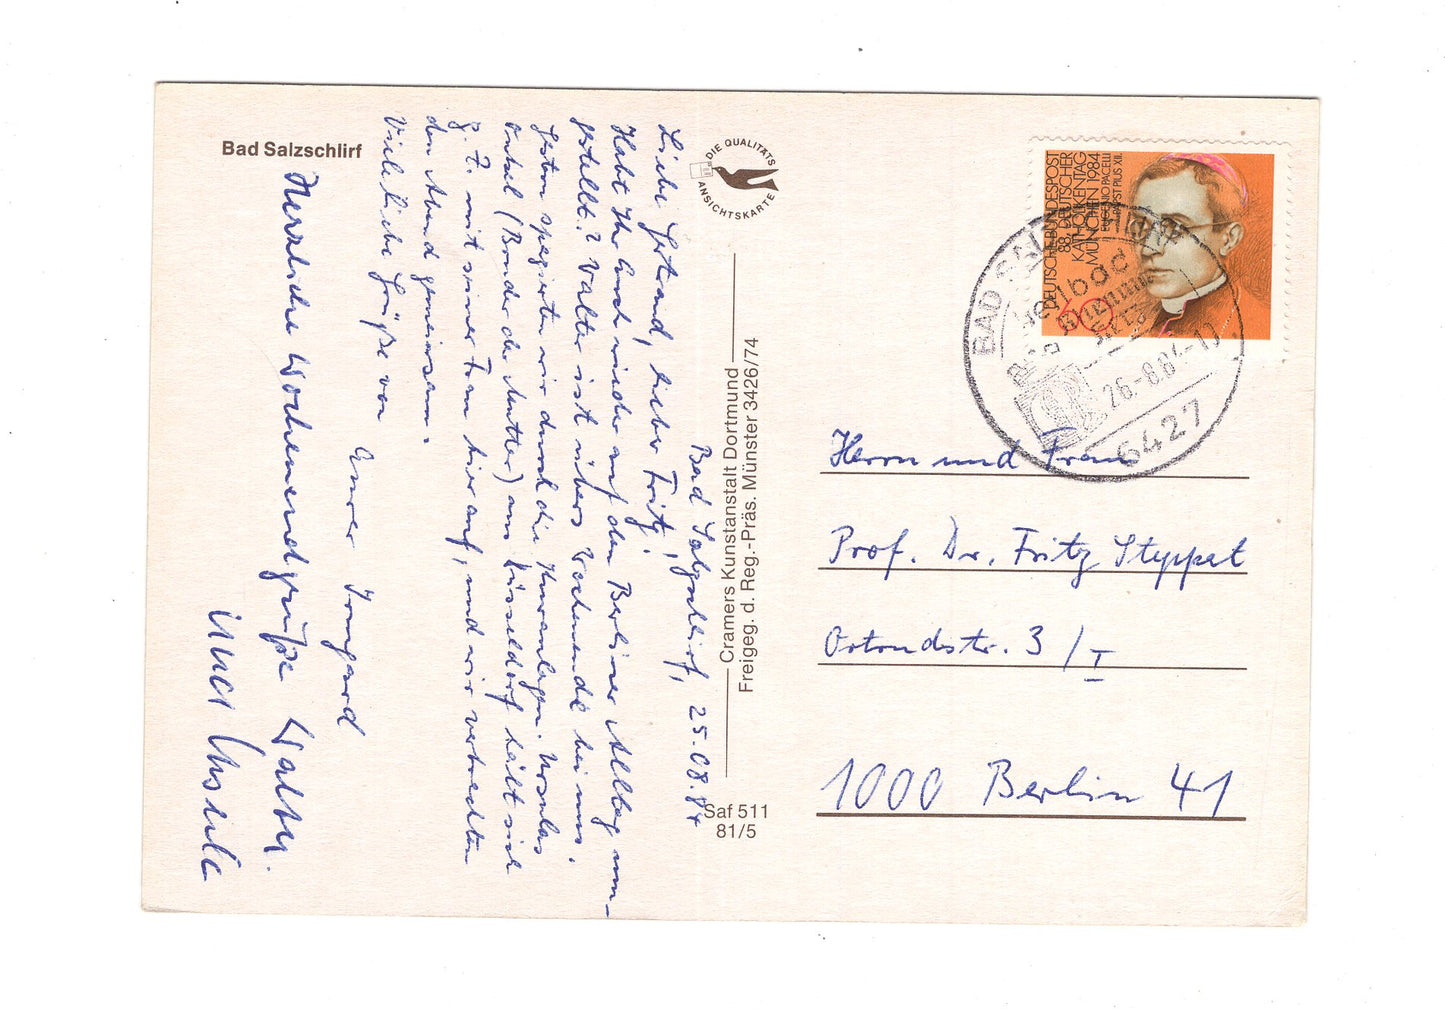 Bad Salzschlirf
DIE QUALITÄTS
ANSICHTSKARTE
Bad Salzschlirf, 25.08.84
Liebe Gertraud, lieber Fritz!
Habt Ihr Euch wieder auf den Berliner Alltag um-
gestellt? Walter ist übers Wochenende bei uns.
Gestern spazierten wir durch die Kuranlagen.
Onkel (Bruder der Mutter) aus Düsseldorf hält sich
z. Z. mit seiner Frau hier auf, und wir verbrachten
den Abend gemeinsam.
Viele liebe Grüße von
Eurer Irmgard
Herzliche Wochenendgrüße Walter.
Cramers Kunstanstalt Dortmund
Freigeg. d. Reg.-Präs. Münster 3426/74
Saf 511
81/5
DEUTSCHE BUNDESPOST
88. DEUTSCHER
KATHOLIKENTAG
MÜNCHEN 1984
EUGENIO PACELLI
PAPST PIUS XII.
60
BAD SALZ
26.-8.84-10
6427
Herrn und Frau
Prof. Dr. Fritz Steppat
Ortrudstr. 3 / I
1000 Berlin 41